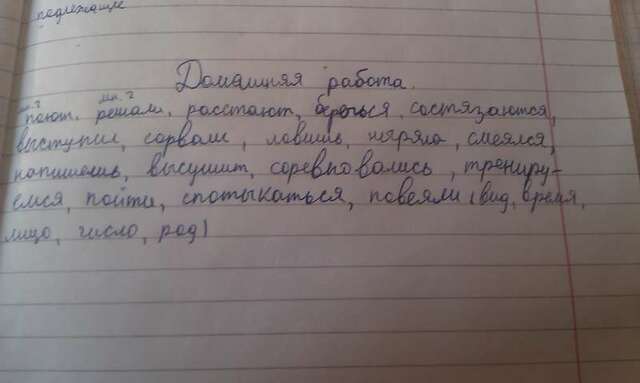 подлежащие
Домашняя работа.
мн. ч
поют, решали, расстают, беречься, состязаются,
выступил, сорвали, ловишь, ныряло, смеялся,
напишешь, высушит, соревновались, трениру-
емся, пойти, спотыкаться, повеяли (вид, время,
лицо, число, род)